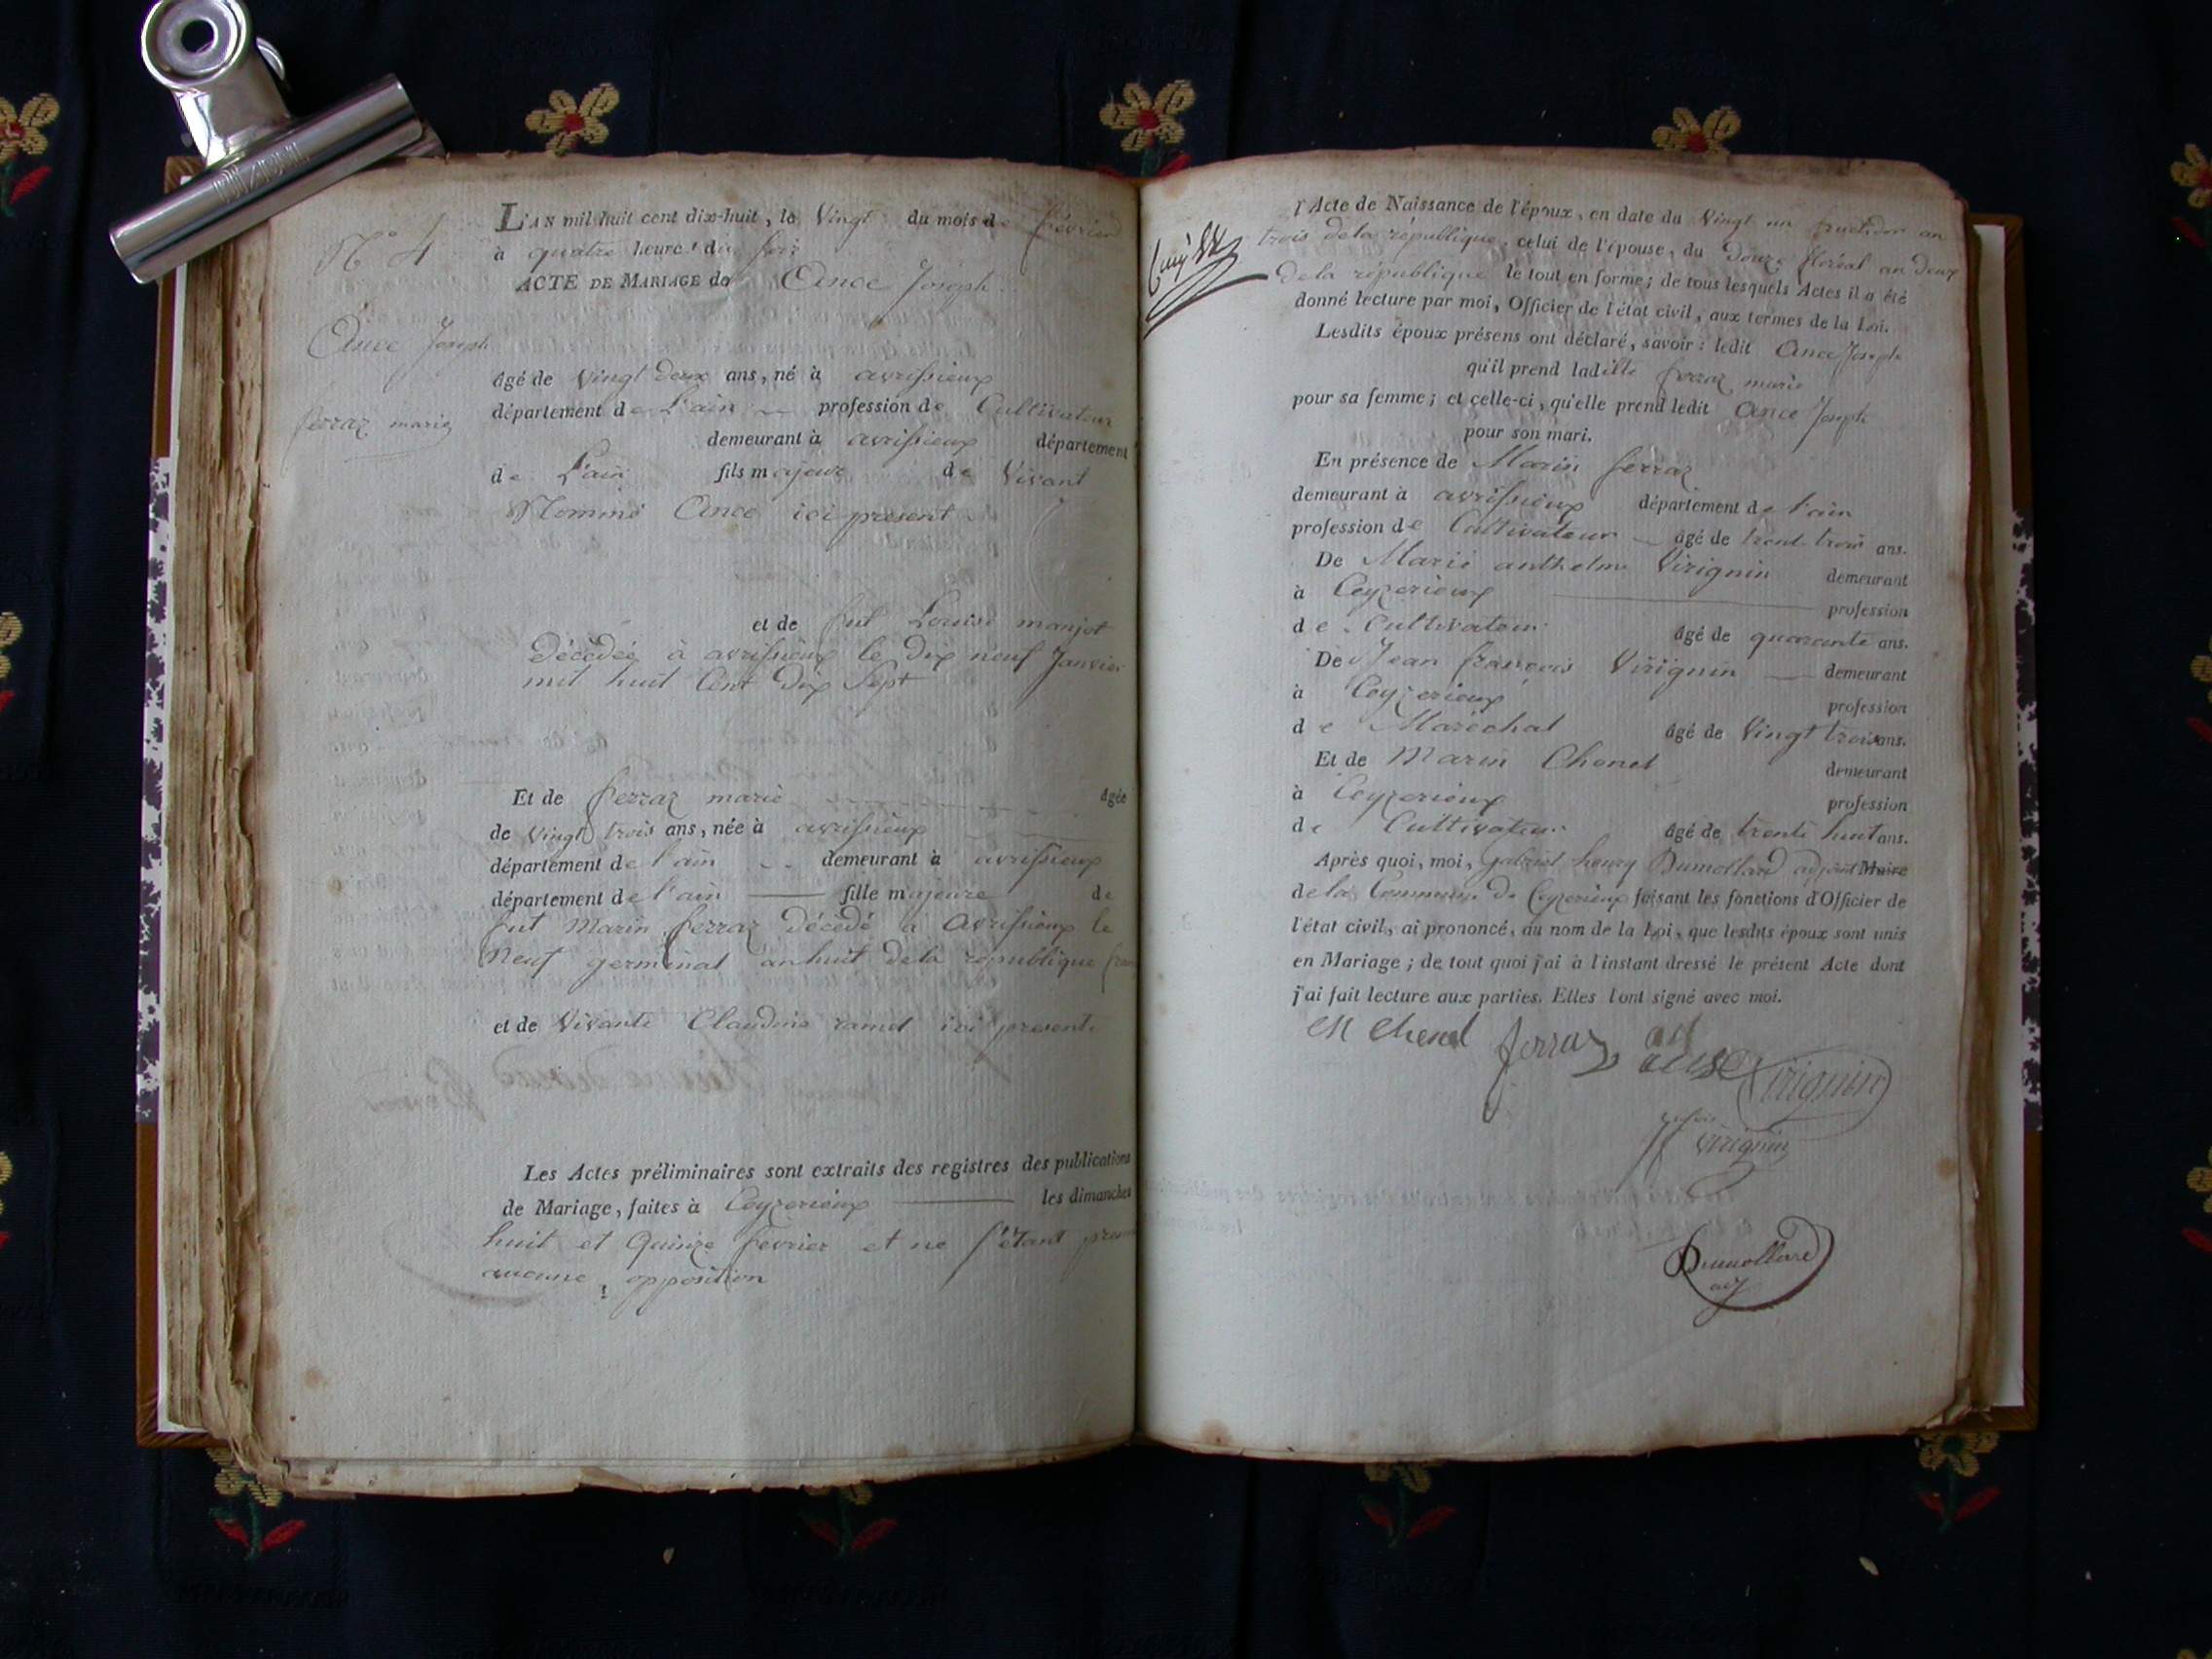 L'AN mil huit cent dix-huit, le Vingt du mois de février
N° 4
à quatre heures du soir
ACTE DE MARIAGE de Ance Joseph
Ance Joseph
âgé de Vingt deux ans, né à avrissieux
ferraz marie
département de L'ain profession de Cultivateur
demeurant à avrissieux département
de L'ain fils majeur de Vivant
Nommé Ance ici présent
et de fut Louise manjot
Décédée à avrissieux le Dix neuf Janvier
mil huit Cent Dix Sept
Et de ferraz marie âgée
de Vingt trois ans, née à avrissieux
département de l'ain demeurant à avrissieux
département de l'ain fille majeure de
fut Marin ferraz Décédé à Avrissieux le
Neuf germinal an huit de la république
et de Vivante Claudine ramel ici présente
Les Actes préliminaires sont extraits des registres des publications
de Mariage, faites à Ceyzerieux les dimanches
huit et Quinze février et ne s'étant
aucune opposition
l'Acte de Naissance de l'époux, en date du Vingt un fructidor an
trois de la république, celui de l'épouse, du Douze floréal an Deux
De la république le tout en forme; de tous lesquels Actes il a été
donné lecture par moi, Officier de l'état civil, aux termes de la Loi.
Lesdits époux présens ont déclaré, savoir: ledit Ance Joseph
qu'il prend ladille ferraz marie
pour sa femme; et celle-ci, qu'elle prend ledit Ance Joseph
pour son mari.
En présence de Marin ferraz
demeurant à avrissieux département de l'ain
profession de Cultivateur âgé de trent trois ans.
De Marie anthelme Virignin demeurant
à Ceyzerieux profession
de Cultivateur âgé de quarante ans.
De Jean françois Virignin demeurant
à Ceyzerieux profession
de Maréchal âgé de Vingt trois ans.
Et de Marin Chenel demeurant
à Ceyzerieux profession
de Cultivateur âgé de trente huit ans.
Après quoi, moi, gabriel henry Dumollard adjoint Maire
de la Commune De Ceyzerieux faisant les fonctions d'Officier de
l'état civil, ai prononcé, au nom de la Loi, que lesdits époux sont unis
en Mariage; de tout quoi j'ai à l'instant dressé le présent Acte dont
j'ai fait lecture aux parties. Elles l'ont signé avec moi.
M Chenel ferraz anse Virignin
Virignin
Dumollard
adj